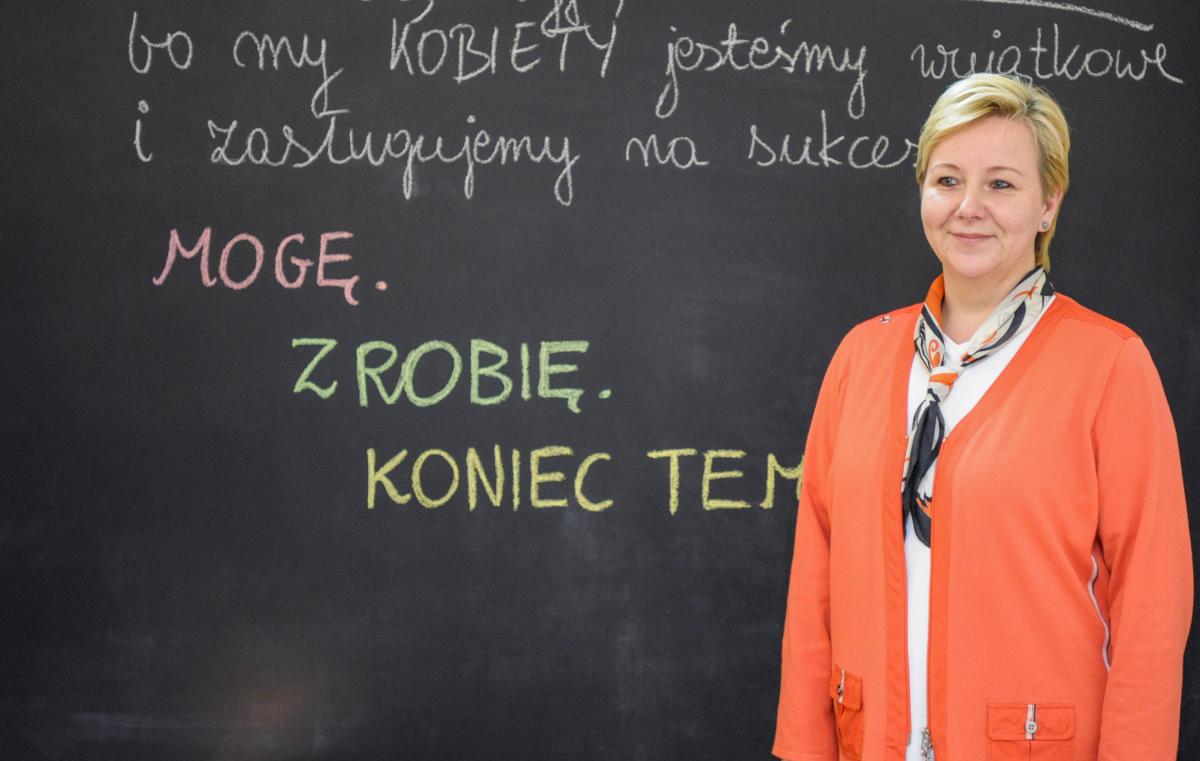 bo my KOBIETY jesteśmy wyjątkowe
i zasługujemy na sukces
MOGĘ.
ZROBIĘ.
KONIEC TEM